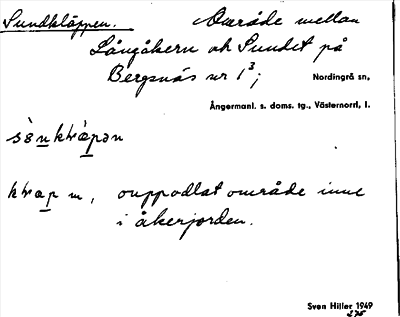 Sundkläppen. Område mellan
Långåkern och Sundet på
Bergsnäs nr 1³;
Nordingrå sn,
Ångermanl. s. doms. tg., Västernorrl. l.
klap m, ouppodlat område inne
i åkerjorden.
Sven Hiller 1949